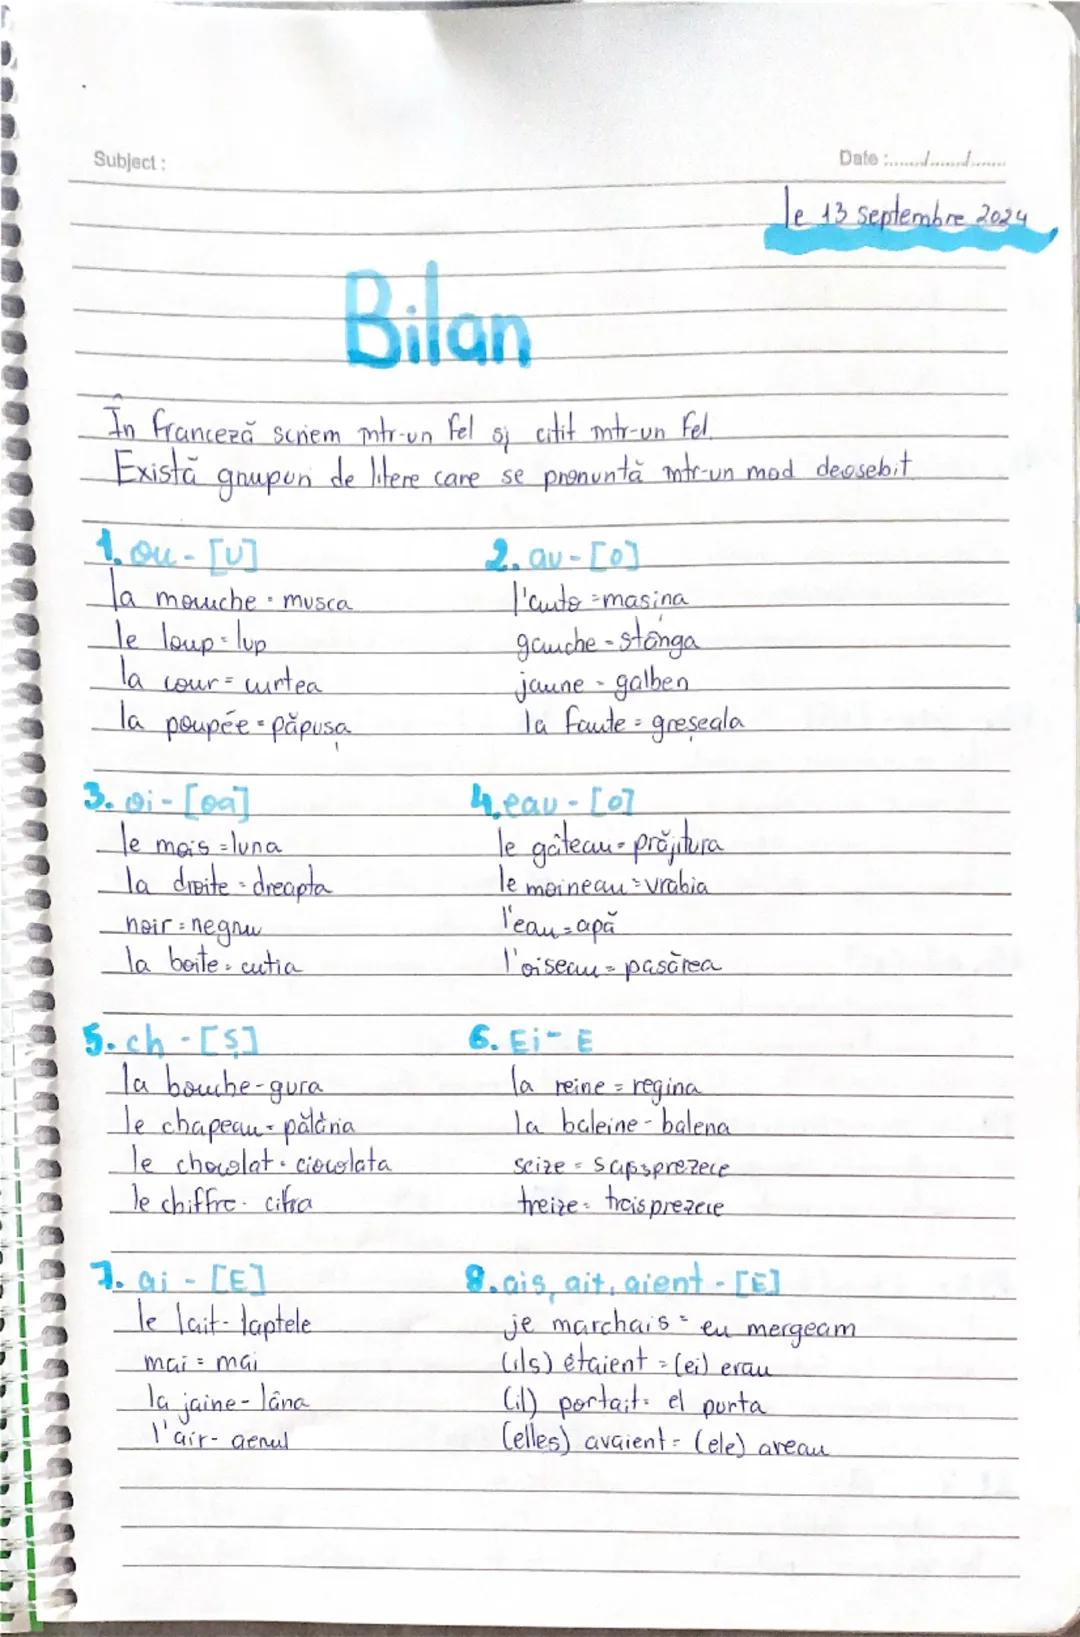 Subject :
Date :....../....../......
le 13 septembre 2024
Bilan
În franceză scriem într-un fel și citit într-un fel.
Există grupuri de litere care se pronunță într-un mod deosebit
1. ou - [U]
la mouche = musca
le loup = lup
la cour = curtea
la poupée = păpușa
2. au - [O]
l'auto = mașina
gauche - stânga
jaune - galben
la faute = greșeala
3. oi - [oa]
le mois = luna
la droite = dreapta
noir = negru
la boite = cutia
4. eau - [O]
le gâteau = prăjitura
le moineau = vrabia
l'eau = apă
l'oiseau = pasărea
5. ch - [Ș]
la bouche - gura
le chapeau = pălăria
le chocolat = ciocolata
le chiffre - cifra
6. Ei - E
la reine = regina
la baleine - balena
seize = șaisprezece
treize = treisprezece
7. ai - [E]
le lait - laptele
mai = mai
la jaine - lâna
l'air - aerul
8. ais, ait, aient - [E]
je marchais = eu mergeam
(ils) étaient = (ei) erau
(il) portait = el purta
(elles) avaient = (ele) aveau